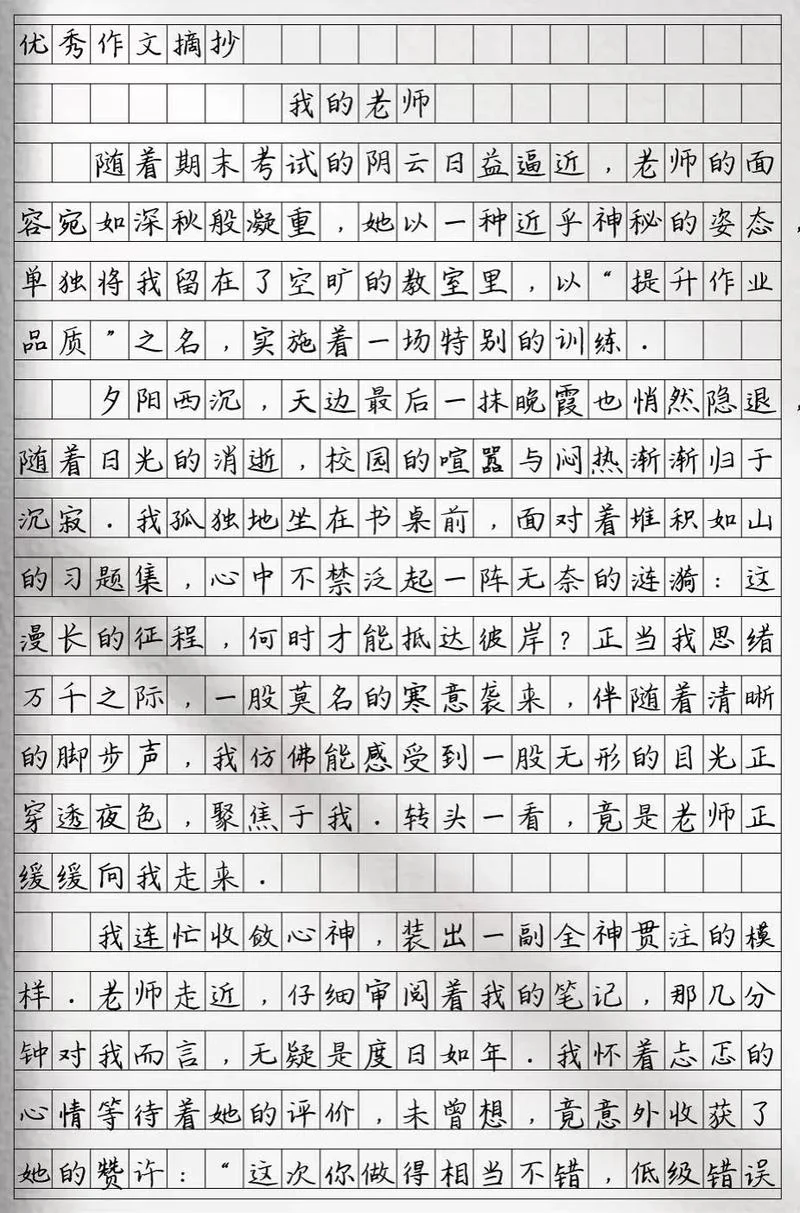 优秀作文摘抄
我的老师
随着期末考试的阴云日益逼近，老师的面
容宛如深秋般凝重，她以一种近乎神秘的姿态，
单独将我留在了空旷的教室里，以“提升作业
品质”之名，实施着一场特别的训练.
夕阳西沉，天边最后一抹晚霞也悄然隐退，
随着日光的消逝，校园的喧嚣与闷热渐渐归于
沉寂.我孤独地坐在书桌前，面对着堆积如山
的习题集，心中不禁泛起一阵无奈的涟漪：这
漫长的征程，何时才能抵达彼岸？正当我思绪
万千之际，一股莫名的寒意袭来，伴随着清晰
的脚步声，我仿佛能感受到一股无形的目光正
穿透夜色，聚焦于我.转头一看，竟是老师正
缓缓向我走来.
我连忙收敛心神，装出一副全神贯注的模
样.老师走近，仔细审阅着我的笔记，那几分
钟对我而言，无疑是度日如年.我怀着忐忑的
心情等待着她的评价，未曾想，竟意外收获了
她的赞许：“这次你做得相当不错，低级错误